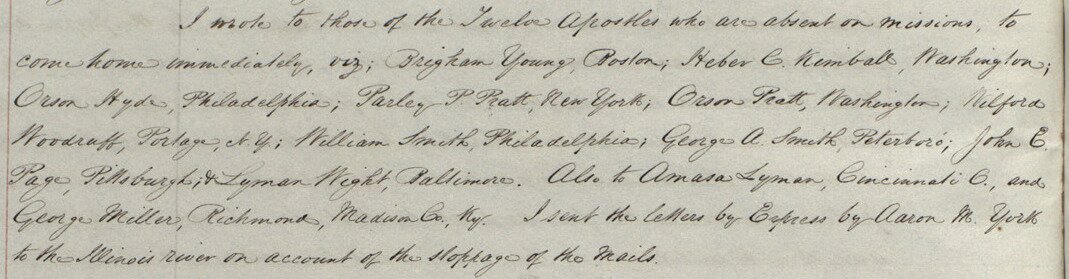 I wrote to those of the Twelve Apostles who are absent on missions, to
come home immediately, viz; Brigham Young, Boston; Heber C. Kimball, Washington;
Orson Hyde, Philadelphia; Parley P. Pratt, New York; Orson Pratt, Washington; Wilford
Woodruff, Portage, N.Y.; William Smith, Philadelphia; George A. Smith, Peterboro; John E.
Page, Pittsburgh; & Lyman Wight, Baltimore. Also to Amasa Lyman, Cincinnati O., and
George Miller, Richmond, Madison Co., Ky. I sent the letters by Express by Aaron M. York
to the Illinois river on account of the stoppage of the Mails.